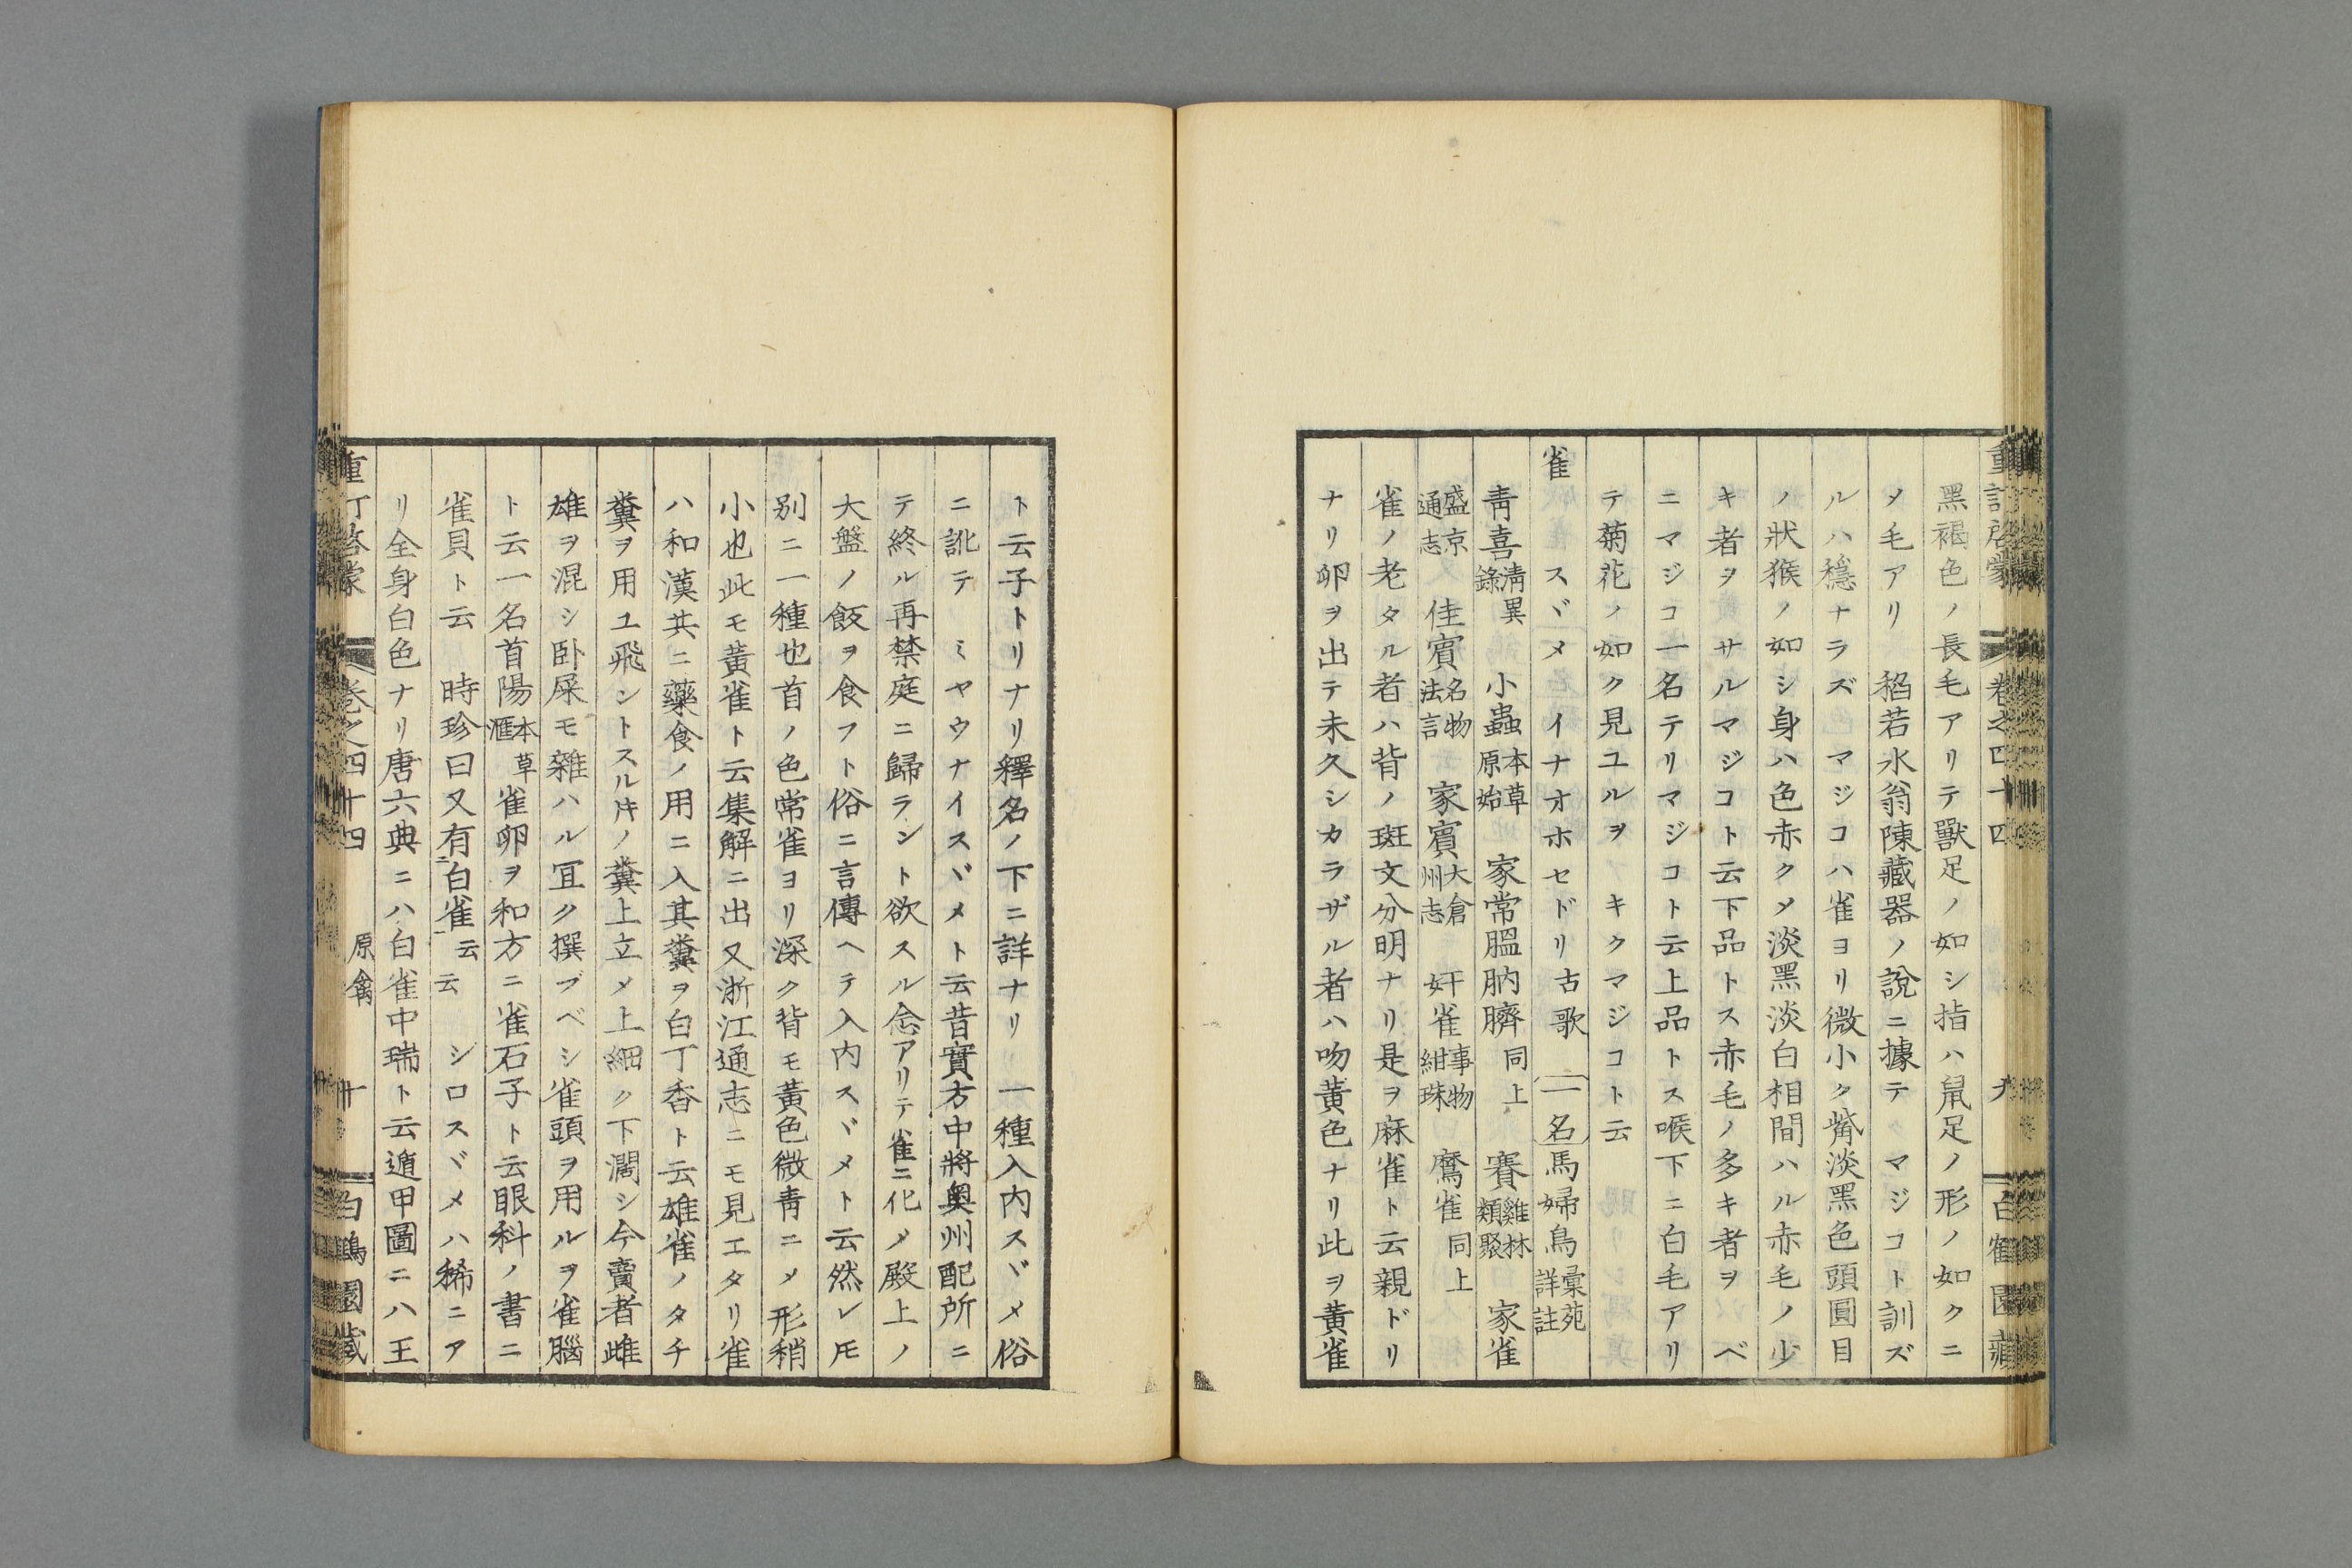 黑褐色ノ長毛アリテ獸足ノ如シ指ハ鼠足ノ形ノ如クニ
メ毛アリ 稻若水翁陳藏器ノ說ニ據テ マジコト訓ズ
ルハ穩ナラズ マジコハ雀ヨリ微小ク觜淡黑色頭圓目
ノ狀猴ノ如シ身ハ色赤クメ淡黑淡白相間ハル赤毛ノ少
キ者ヲ サルマジコト云下品トス赤毛ノ多キ者ヲ ベ
ニマジコ一名テリマジコト云上品トス喉下ニ白毛アリ
テ菊花ノ如ク見ユルヲ キクマジコト云
雀 スヾメ イナオホセドリ古歌 一名馬婦鳥彙苑詳註
靑喜淸異錄 小蟲本草原始 家常膃肭臍同上 賽雞林類聚 家雀
盛京通志 佳賓名物法言 家賓大倉州志 奸雀事物紺珠 鷹雀同上
雀ノ老タル者ハ背ノ斑文分明ナリ是ヲ麻雀ト云親ドリ
ナリ卵ヲ出テ未久シカラザル者ハ吻黃色ナリ此ヲ黃雀
卷之四十四 九
ト云子トリナリ釋名ノ下ニ詳ナリ 一種入内スヾメ俗
ニ訛テ ミヤウナイスヾメト云昔實方中將奧州配所ニ
テ終ル再禁庭ニ歸ラント欲スル念アリテ雀ニ化メ殿上ノ
大盤ノ飯ヲ食フト俗ニ言傳ヘテ入内スヾメト云然レ𪜈
别ニ一種也首ノ色常雀ヨリ深ク背モ黃色微靑ニメ形稍
小也此モ黃雀ト云集解ニ出又浙江通志ニモ見エタリ雀
ハ和漢共ニ藥食ノ用ニ入其糞ヲ白丁香ト云雄雀ノタチ
糞ヲ用ユ飛ントスル𪜈ノ糞上立メ上細ク下濶シ今賣者雌
雄ヲ混シ卧屎モ雜ハル冝ク撰ブベシ雀頭ヲ用ルヲ雀腦
ト云一名首陽本草滙 雀卵ヲ和方ニ雀石子ト云眼科ノ書ニ
雀貝ト云 時珍曰又有白雀云云 シロスヾメハ稀ニア
リ全身白色ナリ唐六典ニハ白雀中瑞ト云遁甲圖ニハ王
重訂啓蒙 卷之四十四 原禽 十 白鶴園藏